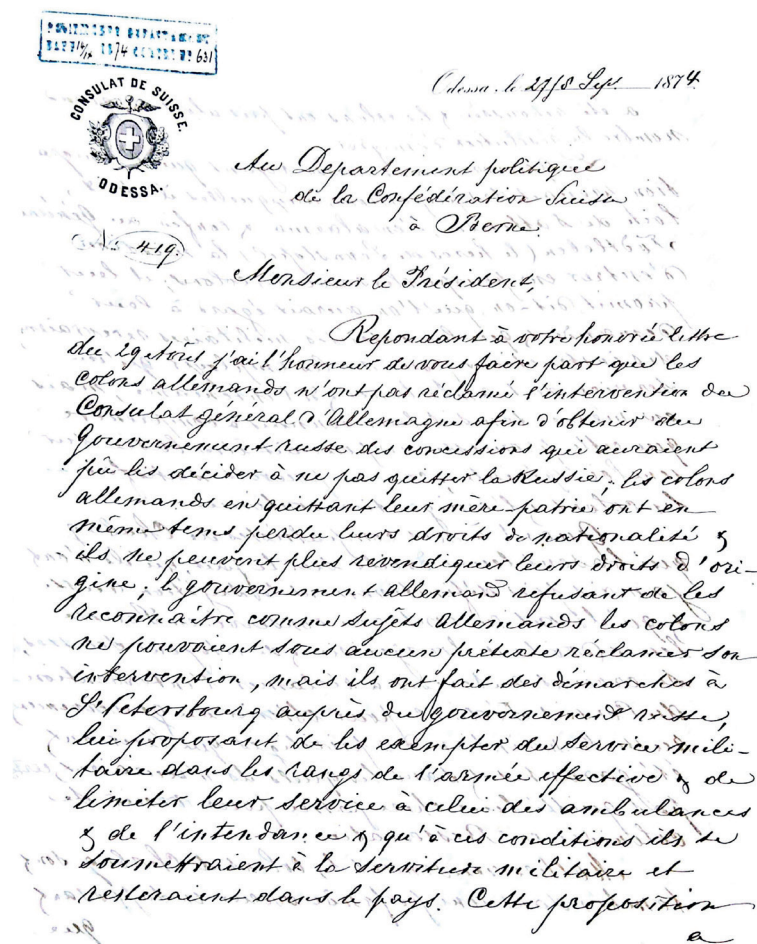 POLITISCHES DEPARTEMENT
14/IX 1874 CONTROL Nº 631
CONSULAT DE SUISSE.
ODESSA.
Odessa, le 27/8 Sept. 1874.
Au Departement politique
de la Confédération Suisse
à Berne.
No. 419.
Monsieur le Président,
Repondant à votre honorée lettre
du 29 Août j'ai l'honneur de vous faire part que les
colons allemands n'ont pas réclamé l'intervention du
Consulat général d'Allemagne afin d'obtenir du
Gouvernement russe des concessions qui auraient
pû les décider à ne pas quitter la Russie; les colons
allemands en quittant leur mère-patrie ont en
même tems perdu leurs droits de nationalité &
ils ne peuvent plus revendiquer leurs droits d'ori-
gine; le gouvernement allemand refusant de les
reconnaître comme sujets allemands les colons
ne pouvaient sous aucun prétexte réclamer son
intervention, mais ils ont fait des démarches à
St Petersbourg auprès du gouvernement russe,
lui proposant de les exempter du service mili-
taire dans les rangs de l'armée effective & de
limiter leur service à celui des ambulances
& de l'intendance & qu'à ces conditions ils se
soumettraient à la servitude militaire et
resteraient dans le pays. Cette proposition
a